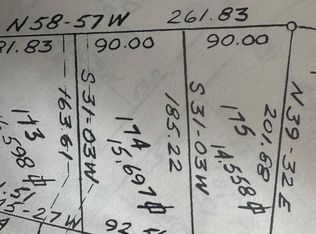 N58-57W 261.83
81.83 90.00 90.00
163.61
S 31-03W
173
598 ф
174
15,697 ф
185.22
S 31-03W
175
14,558 ф
201.88
N 39-32E
5-27W
92